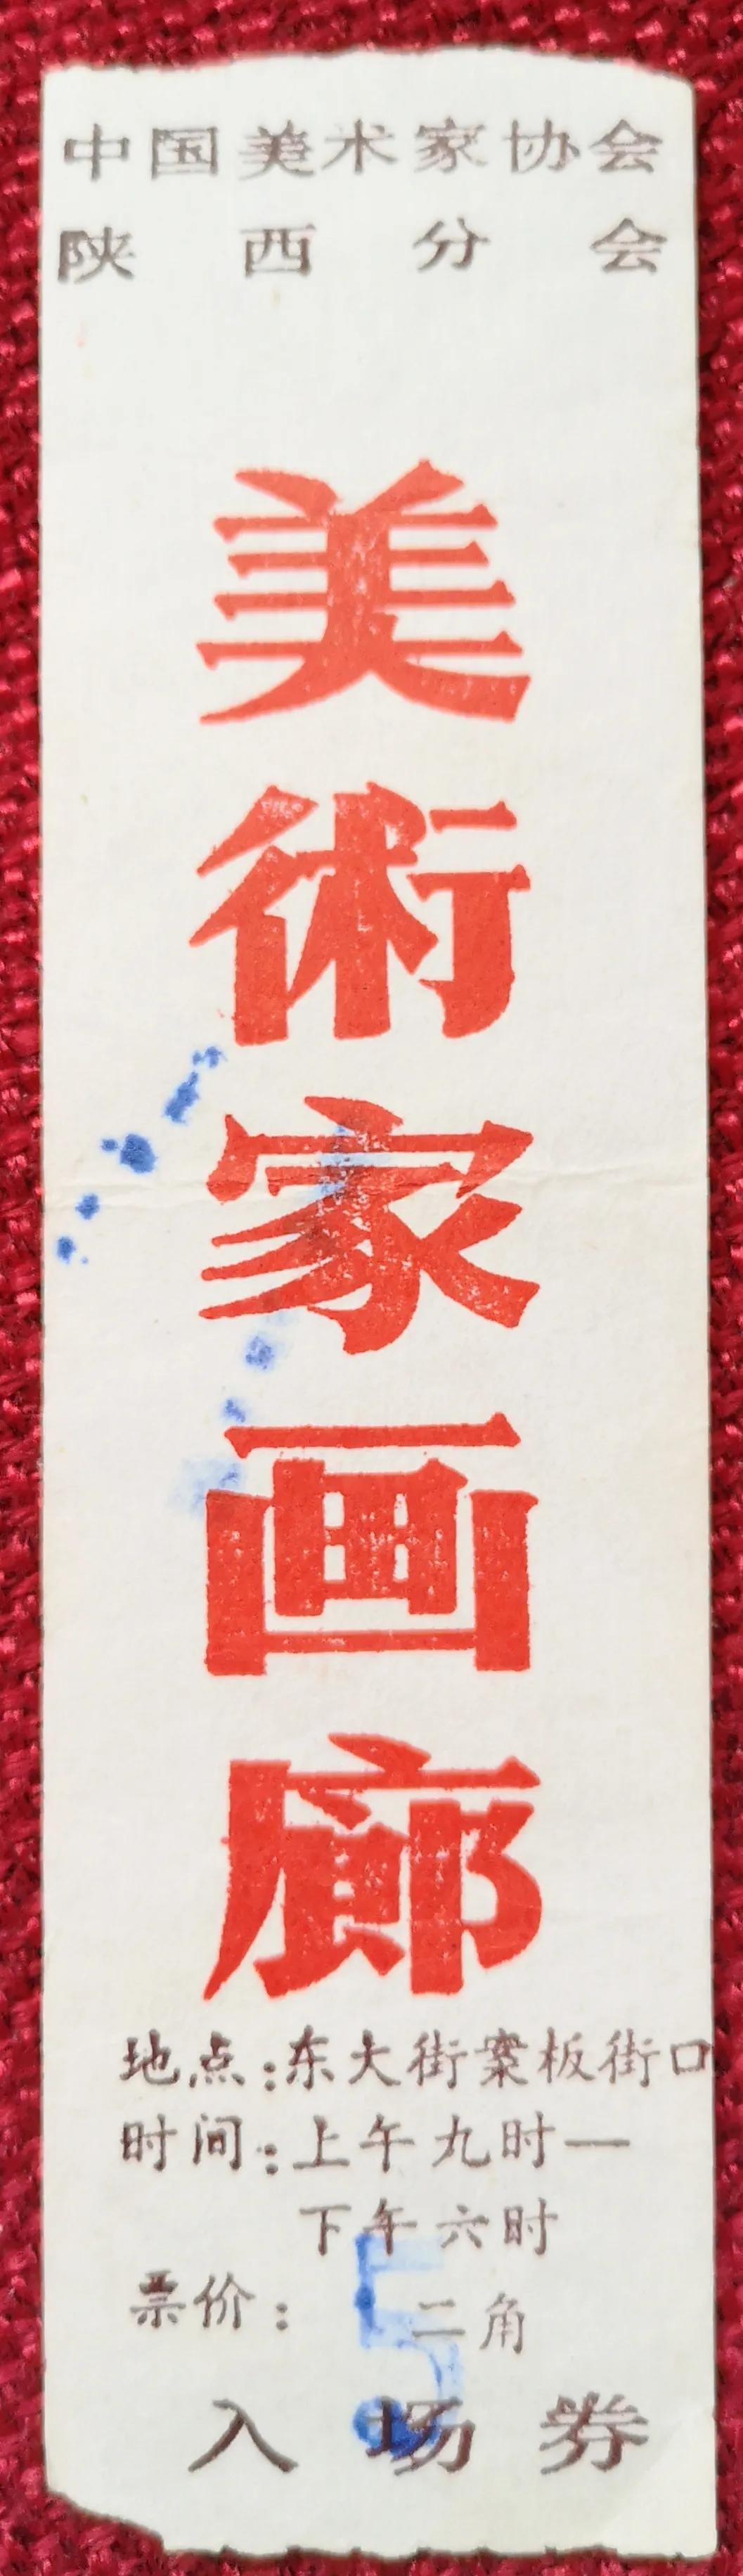 中国美术家协会
陕西分会
美術家画廊
地点:东大街案板街口
时间:上午九时—
下午六时
票价: 二角
5
入场券